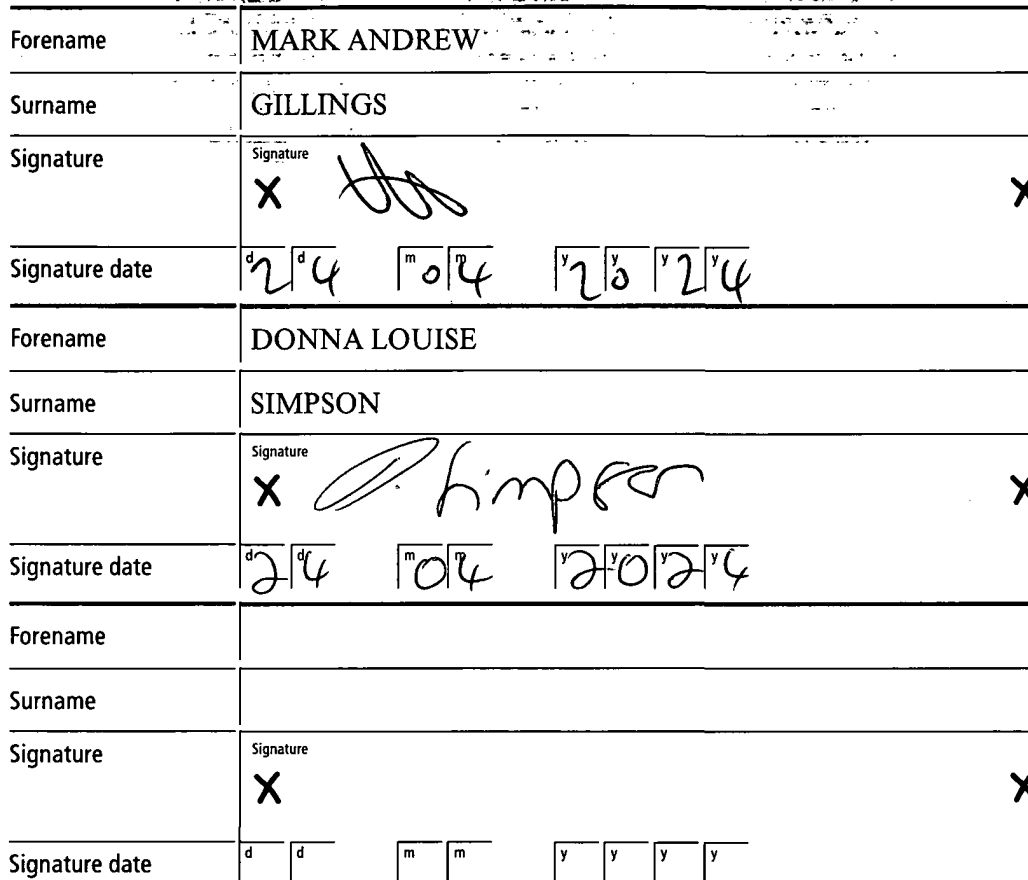 Forename MARK ANDREW
Surname GILLINGS
Signature Signature
X X
Signature date d2 d4 m0 m4 y2 y0 y2 y4
Forename DONNA LOUISE
Surname SIMPSON
Signature Signature
X D. Simpson X
Signature date d2 d4 m0 m4 y2 y0 y2 y4
Forename
Surname
Signature Signature
X X
Signature date d d m m y y y y